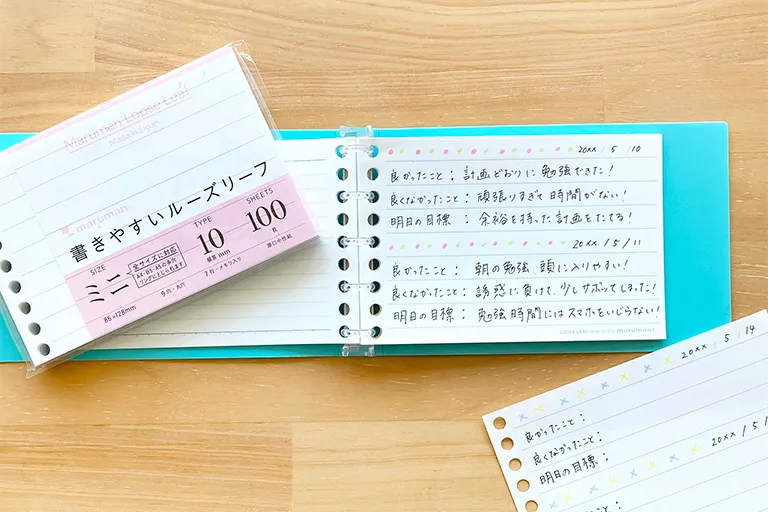 Maruman Loose Leaf
Made in Japan
maruman
書きやすいルーズリーフ
SIZE
ミニ
全サイズに対応
A4・B5・A5の多穴
リングにとじられます
86×128mm
9穴・丸穴
TYPE
10
横罫 mm
7行・メモリ入り
SHEETS
100
枚
厚口中性紙
20xx / 5 / 10
良かったこと： 計画どおりに勉強できた！
良くなかったこと： 頑張りすぎて時間がない！
明日の目標： 余裕を持った計画をたてる！
20xx / 5 / 11
良かったこと： 朝の勉強、頭に入りやすい！
良くなかったこと： 誘惑に負けて、少しサボってしまった！
明日の目標： 勉強時間にはスマホをいじらない！
maruman
20xx / 5 / 14
良かったこと：
良くなかったこと：
明日の目標：
20xx / 5 /
良かったこと：